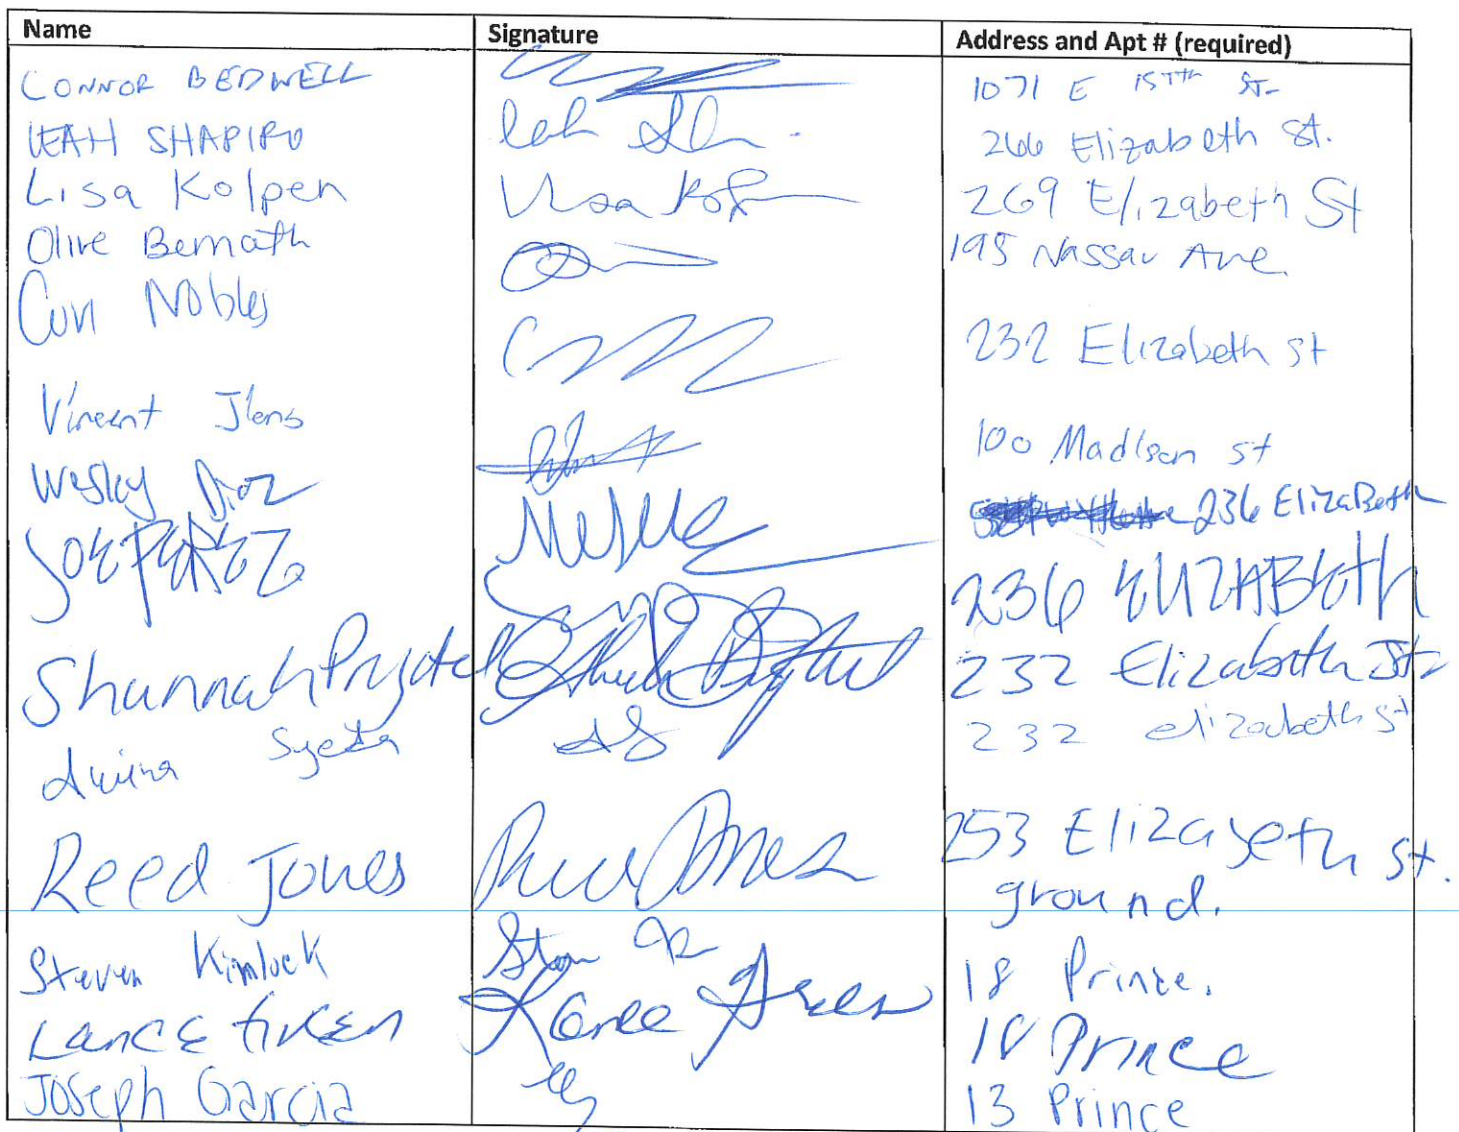 Name Signature Address and Apt # (required)
CONNOR BEDWELL 1071 E 15TH ST.
LEAH SHAPIRO 266 Elizabeth St.
Lisa Kolpen Lisa Kolp 269 Elizabeth St
Olive Bernath 195 Nassau Ave.
Nobles 232 Elizabeth st
Vincent 100 Madison st
Wesley Diaz 236 ElizaBeth
JOE PEREZ 236 ELIZABETH
Shannah Prystel 232 Elizabeth St
232 elizabeth st
Reed Jones Reed Jones 253 Elizabeth St.
ground.
Steven Kimlock 18 Prince.
LANCE 18 Prince
Joseph Garcia 13 Prince